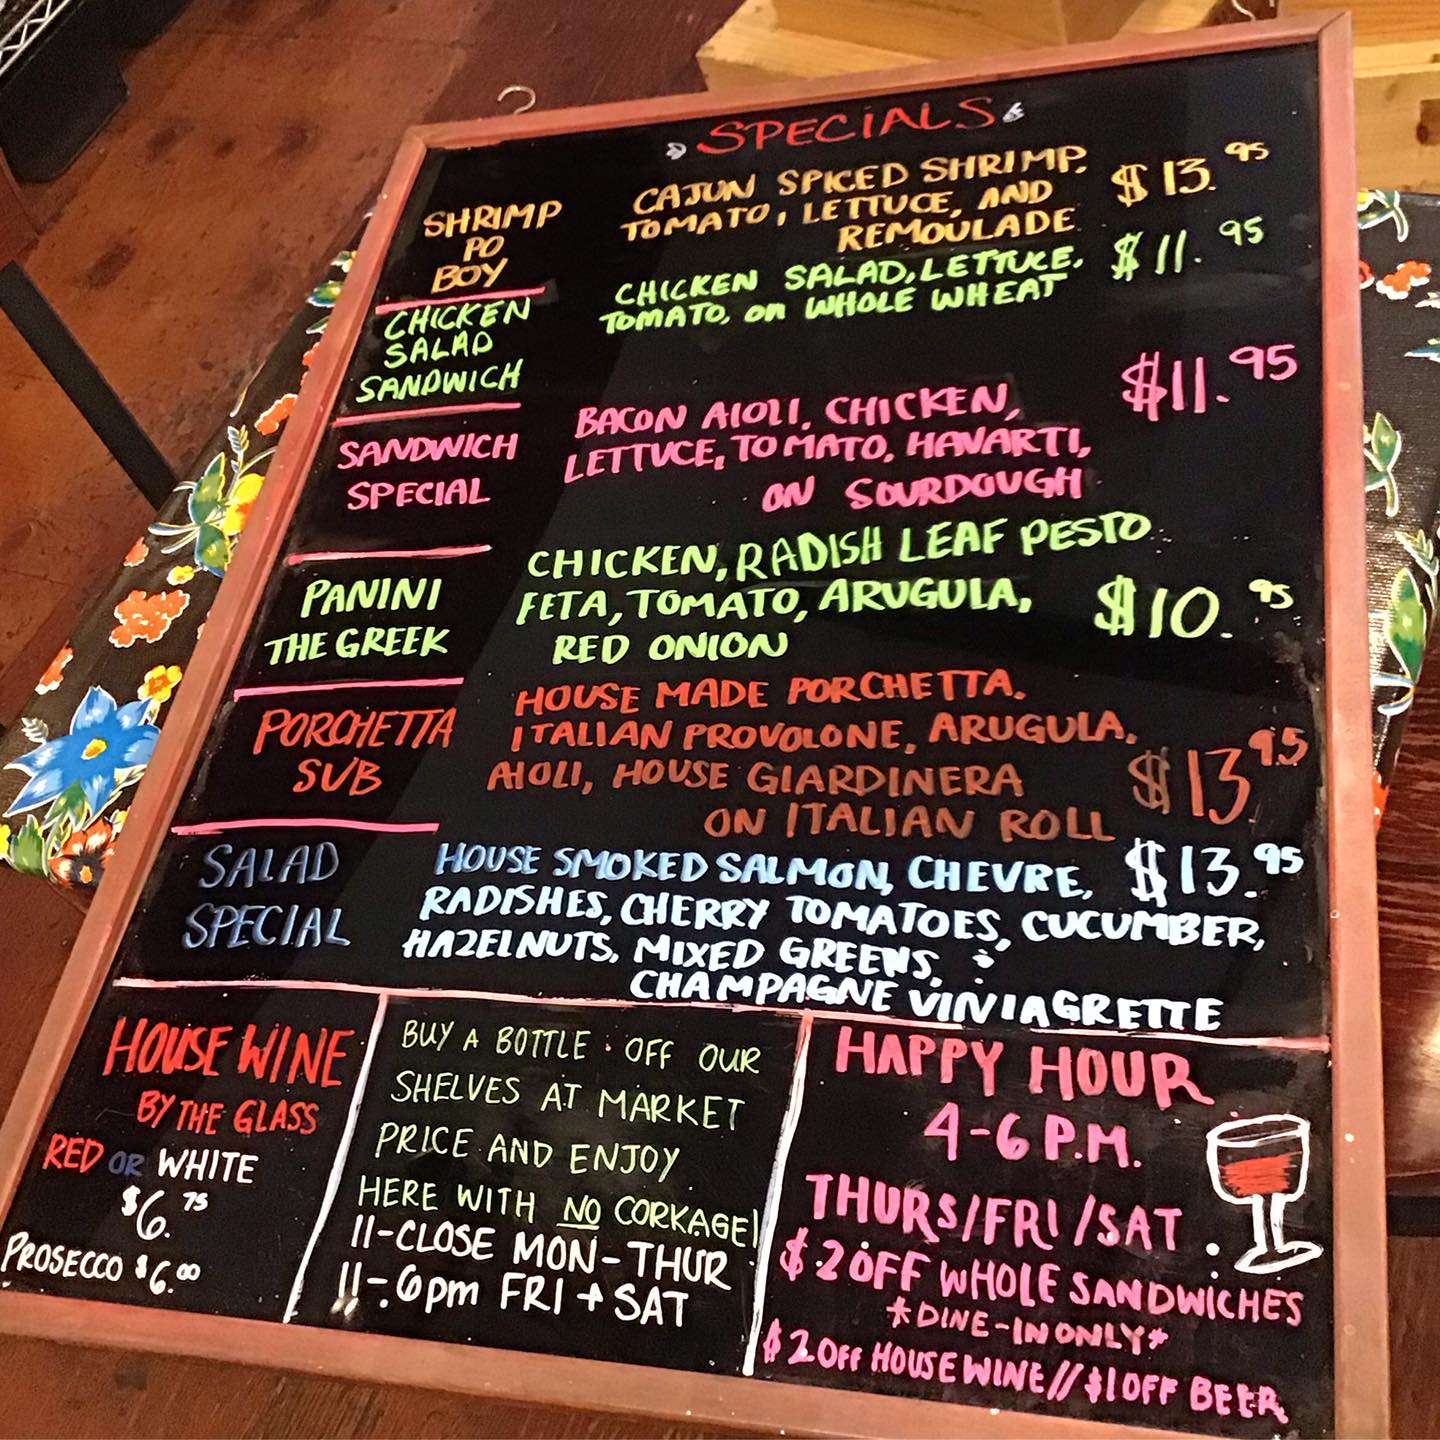 SPECIALS
SHRIMP
PO
BOY
CAJUN SPICED SHRIMP,
TOMATO, LETTUCE, AND
REMOULADE
$13.95
CHICKEN
SALAD
SANDWICH
CHICKEN SALAD, LETTUCE,
TOMATO, on WHOLE WHEAT
$11.95
SANDWICH
SPECIAL
BACON AIOLI, CHICKEN,
LETTUCE, TOMATO, HAVARTI,
ON SOURDOUGH
$11.95
PANINI
THE GREEK
CHICKEN, RADISH LEAF PESTO
FETA, TOMATO, ARUGULA,
RED ONION
$10.95
PORCHETTA
SUB
HOUSE MADE PORCHETTA,
ITALIAN PROVOLONE, ARUGULA,
AIOLI, HOUSE GIARDINERA
ON ITALIAN ROLL
$13.95
SALAD
SPECIAL
HOUSE SMOKED SALMON, CHEVRE,
RADISHES, CHERRY TOMATOES, CUCUMBER,
HAZELNUTS, MIXED GREENS, &
CHAMPAGNE VINIAGRETTE
$13.95
HOUSE WINE
BY THE GLASS
RED OR WHITE
$6.75
PROSECCO $6.00
BUY A BOTTLE OFF OUR
SHELVES AT MARKET
PRICE AND ENJOY
HERE WITH NO CORKAGE!
11-CLOSE MON-THUR
11-6pm FRI + SAT
HAPPY HOUR
4-6 P.M.
THURS/FRI/SAT
$2 OFF WHOLE SANDWICHES
*DINE-IN ONLY*
$2 OFF HOUSE WINE//$1 OFF BEER